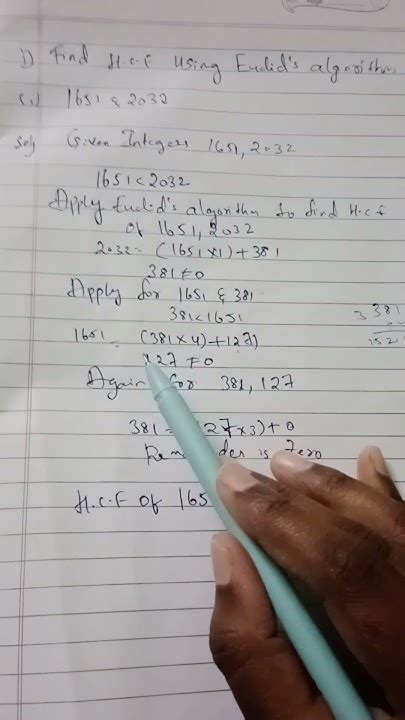 1) Find H.C.F using Euclid's algorithm
(i) 1651 & 2032
Sol) Given Integers 1651, 2032
1651 < 2032
Apply Euclid's algorithm to find H.C.F
of 1651, 2032
2032 = (1651 x 1) + 381
381 ≠ 0
Apply for 1651 & 381
381 < 1651
1651 = (381 x 4) + 127)
127 ≠ 0
Again for 381, 127
381 27 x 3) + 0
is Zero
H.C.F of 165
3 381
152